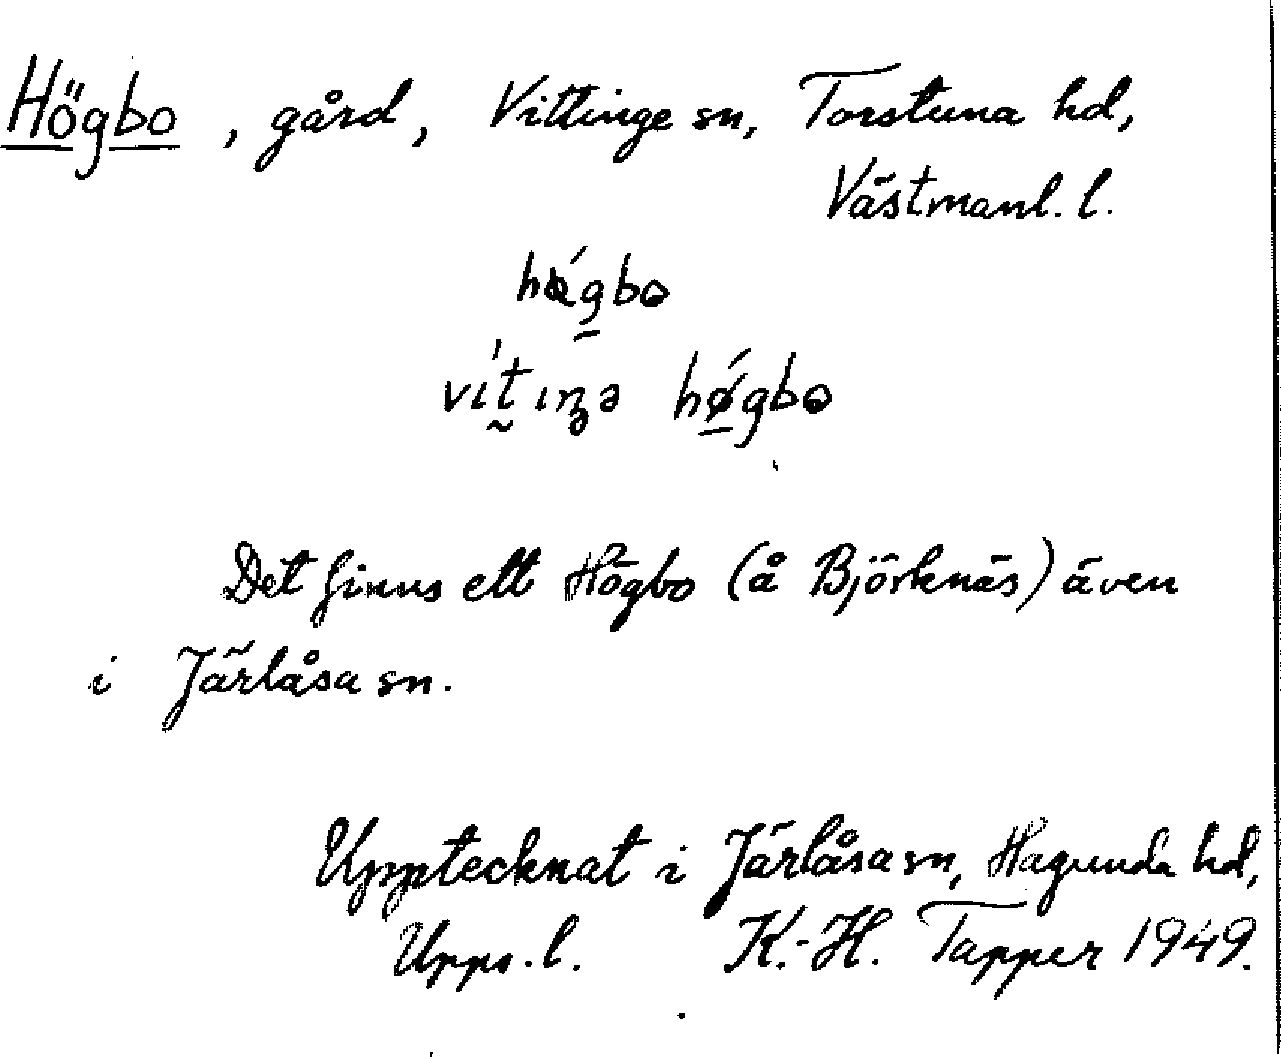 Högbo, gård, Vittinge sn, Torstuna hd,
Västmanl. l.
högbo
vítiŋə hǿgbo
Det finns ett Högbo (å Björknäs) även
i Järlåsa sn.
Upptecknat i Järlåsa sn, Hagunda hd,
Upps. l. K.-H. Tapper 1949.